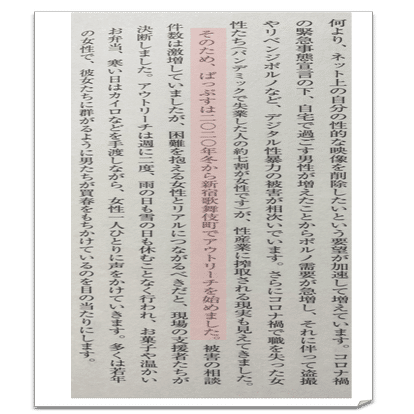 何より、ネット上の自分の性的な映像を削除したいという要望が加速して増えています。コロナ禍
の緊急事態宣言の下、自宅で過ごす男性が増えたことからポルノ需要が急増し、それに伴って盗撮
やリベンジポルノなど、デジタル性暴力の被害が相次いでいます。さらにコロナ禍で職を失った女
性たち(パンデミックで失業した人の約七割が女性)ですが、性産業に搾取される現実も見えてきました。
そのため、ぱっぷすは二〇二〇年冬から新宿歌舞伎町でアウトリーチを始めました。被害の相談
件数は激増していましたが、困難を抱える女性とリアルにつながるべきだと、現場の支援者たちが
決断しました。アウトリーチは週に二度、雨の日も雪の日も休むことなく行われ、お菓子や温かい
お弁当、寒い日はカイロなどを手渡しながら、女性一人ひとりに声をかけていきます。多くは若年
の女性で、彼女たちに群がるように男たちが買春をもちかけているのを目の当たりにします。